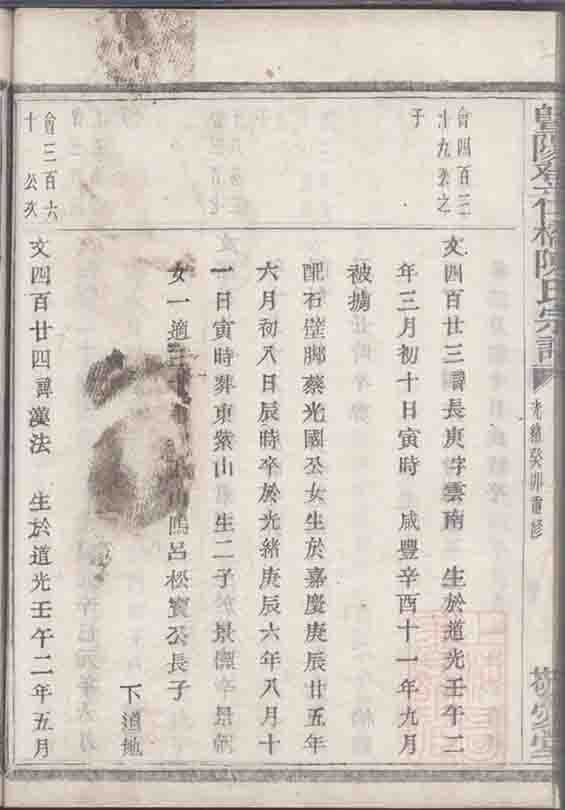 陳氏宗譜
光緒癸卯重修
會四百三
十九公之
子
文四百廿三諱長庚字雲南 生於道光壬午二
年三月初十日寅時 咸豐辛酉十一年九月
被擄
配石壁腳蔡光國公女生於嘉慶庚辰廿五年
六月初八日辰時卒於光緒庚辰六年八月十
一日寅時葬東紫山 生二子 景 景
女一適 塢呂松寶公長子
下道地
會三百六
十 公次
文四百廿四諱漢法 生於道光壬午二年五月